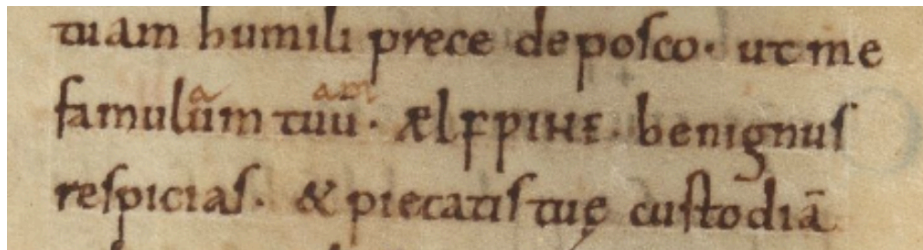 tuam humili prece deposco· ut me
famulūm tuū· ÆLFǷINE· benignus
respicias· & pietatis tuę custodiā